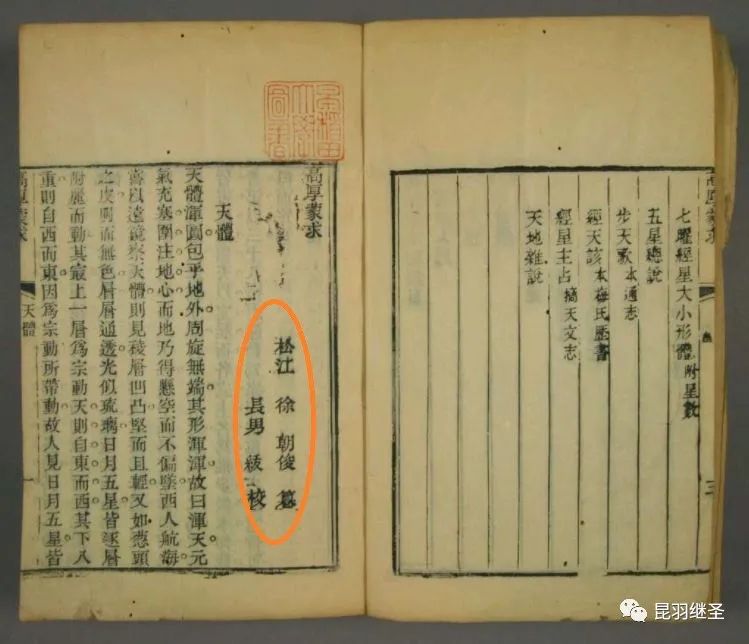 高厚蒙求
三
七曜經星大小形體附星數
五星總說
步天歌本通志
經天該本梅氏歷書
經星主占摘天文志
天地雜說
高厚蒙求
松江 徐 朝俊 纂
長男 紱 校
天體
天體渾圓包乎地外周旋無端其形渾渾故曰渾天元
氣充塞圍注地心而地乃得懸空而不偏墜西人航海
嘗以遠鏡察天體則見稜層凹凸堅而且輕又如蔥頭
之皮明而無色層層通透光似琉璃日月五星皆逐層
附麗而動其冣上一層爲宗動天則自東而西其下八
重則自西而東因爲宗動所帶動故人見日月五星皆
高厚蒙求
天體
一
昆羽继圣